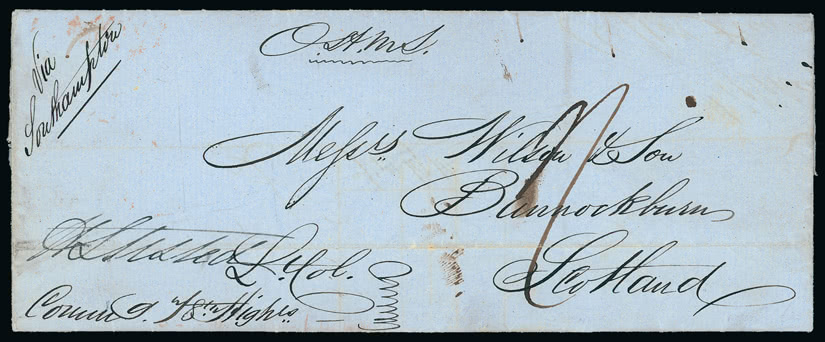 O.H.M.S.
Via
Southampton
Messrs Wilson & Son
Bannockburn
Scotland
Lt. Col.
Commdg. 78th Highrs